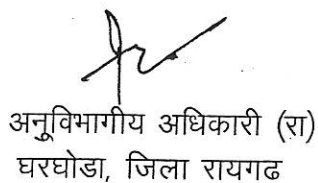 अनुविभागीय अधिकारी (रा)
घरघोडा, जिला रायगढ